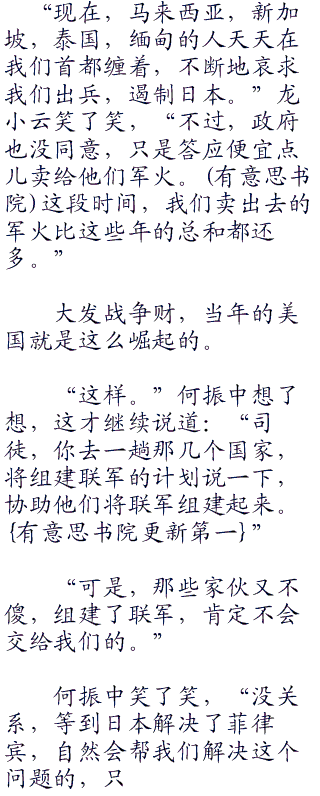 “现在，马来西亚，新加
坡，泰国，缅甸的人天天在
我们首都缠着，不断地哀求
我们出兵，遏制日本。”龙
小云笑了笑，“不过，政府
也没同意，只是答应便宜点
儿卖给他们军火。(有意思书
院)这段时间，我们卖出去的
军火比这些年的总和都还
多。”
大发战争财，当年的美
国就是这么崛起的。
“这样。”何振中想了
想，这才继续说道：“司
徒，你去一趟那几个国家，
将组建联军的计划说一下，
协助他们将联军组建起来。
{有意思书院更新第一}”
“可是，那些家伙又不
傻，组建了联军，肯定不会
交给我们的。”
何振中笑了笑，“没关
系，等到日本解决了菲律
宾，自然会帮我们解决这个
问题的，只